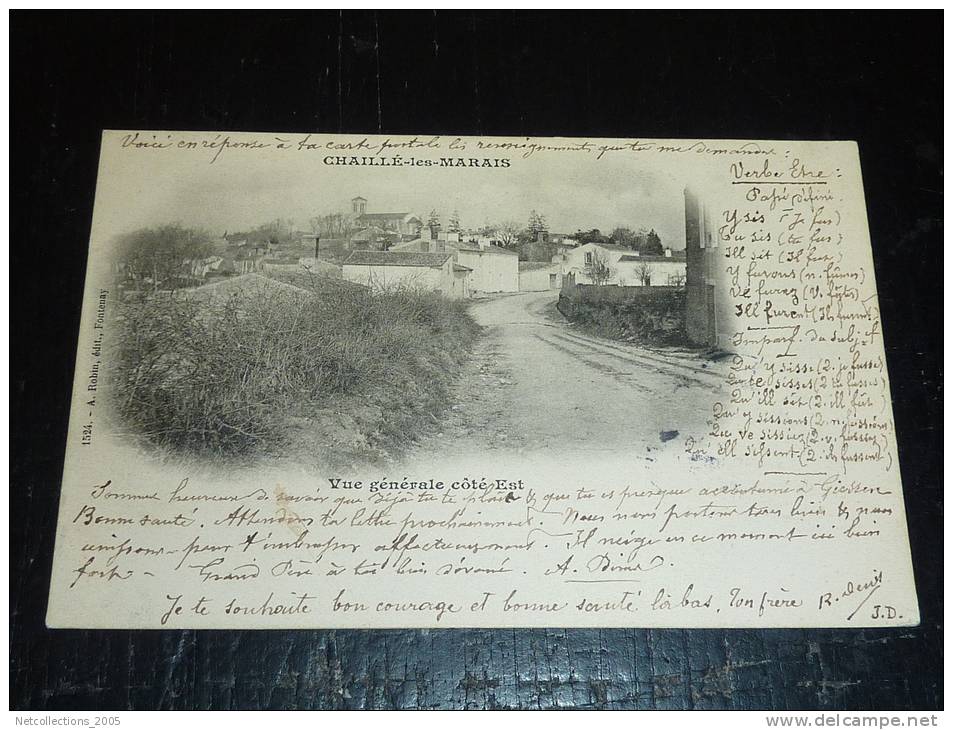 Voici en réponse à ta carte postale les renseignements que tu me demandes :
CHAILLÉ-les-MARAIS
Verbe Etre :
Passé défini
Y sis (Je fus)
Tu sis (tu fus)
Ill sit (Il fut)
Y furons (n. fûmes)
Ve furez (V. fûtes)
Ill furent (Ils furent)
Imparf. du subj.f
Qu'y sisse (2. je fusse)
Que te sisses (2 tu fusses)
Qu'ill sît (2. ill fût)
Qu'y sissions (2. n. fussions)
Que ve sissiez (2. v. fussiez)
Qu'ill sissent (2. ils fussent)
1524. - A. Robin, édit., Fontenay
Vue générale côté Est
Sommes heureux de savoir que déjà tu te plais & que tu es presque accoutumé à Giessen
Bonne santé. Attendons ta lettre prochainement. Nous nous portons tous bien & nous
unissons pour t'embrasser affectueusement. Il neige en ce moment ici bien
fort - Grand Père à toi bien dévoué. A.
Je te souhaite bon courage et bonne santé là bas. Ton frère R. Denis
J.D.
Netcollections_2005